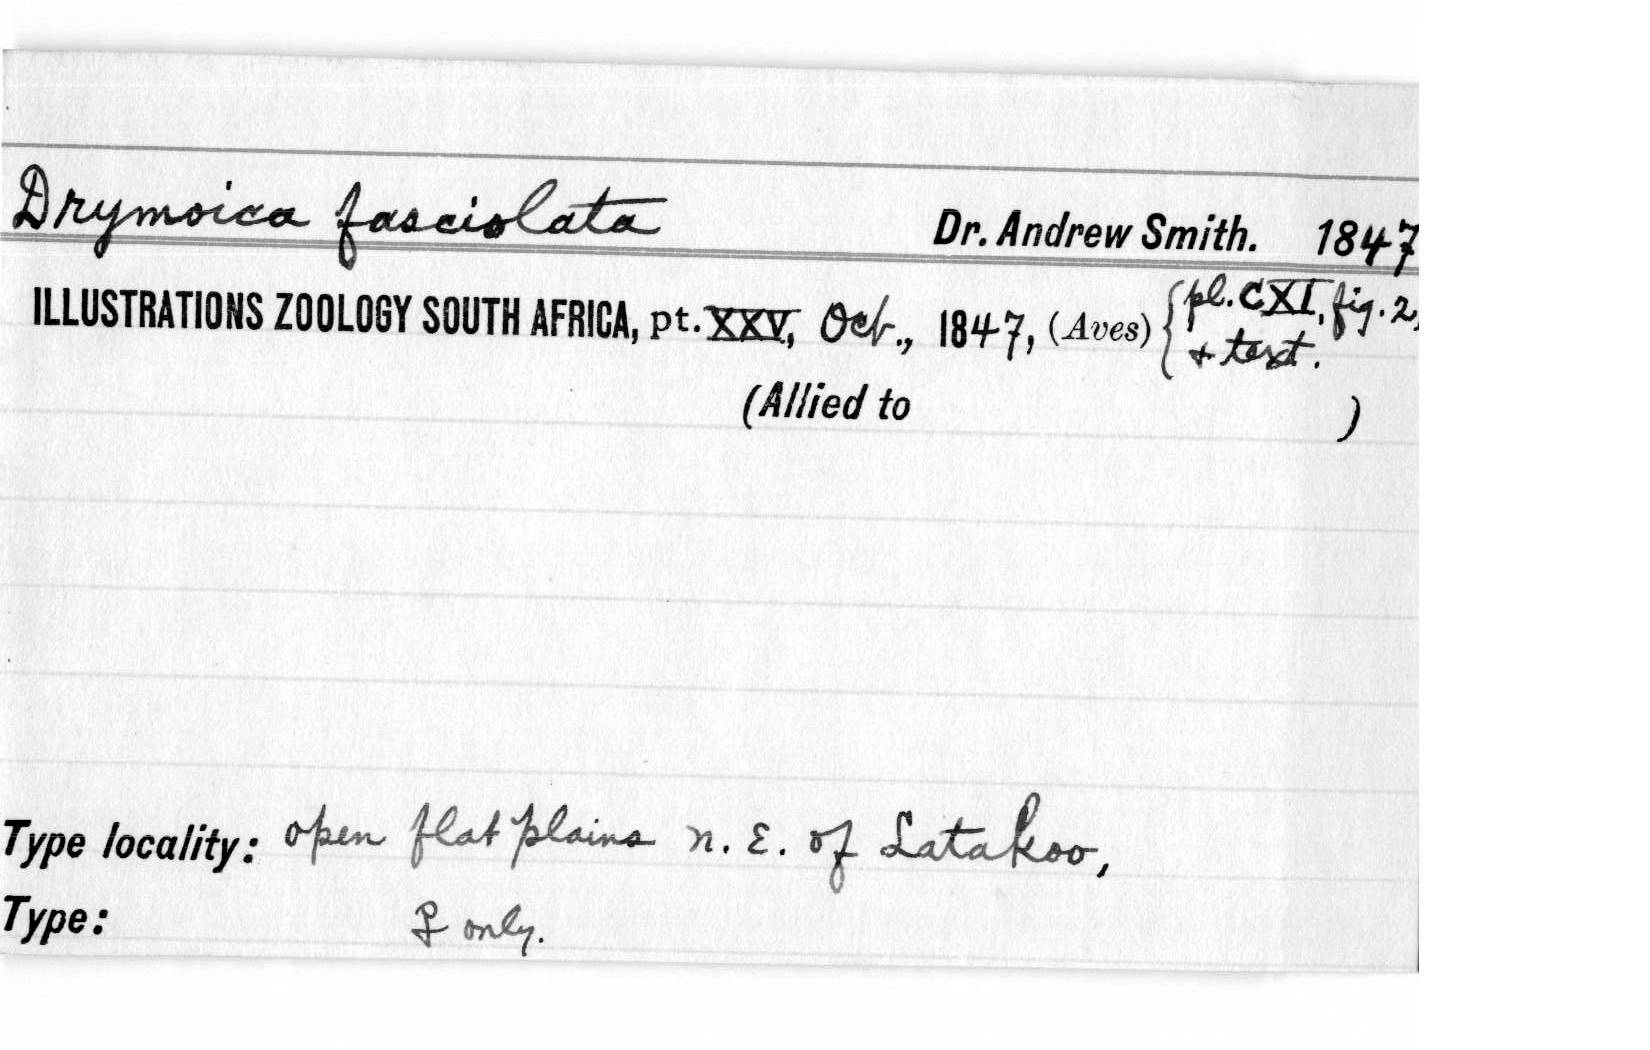 Drymoica fasciolata Dr. Andrew Smith. 1847
ILLUSTRATIONS ZOOLOGY SOUTH AFRICA, pt. XXV, Oct., 1847, (Aves) { pl. CXI, fig. 2,
+ text.
(Allied to )
Type locality: open flat plains n. E. of Latakoo,
Type: ♀ only.